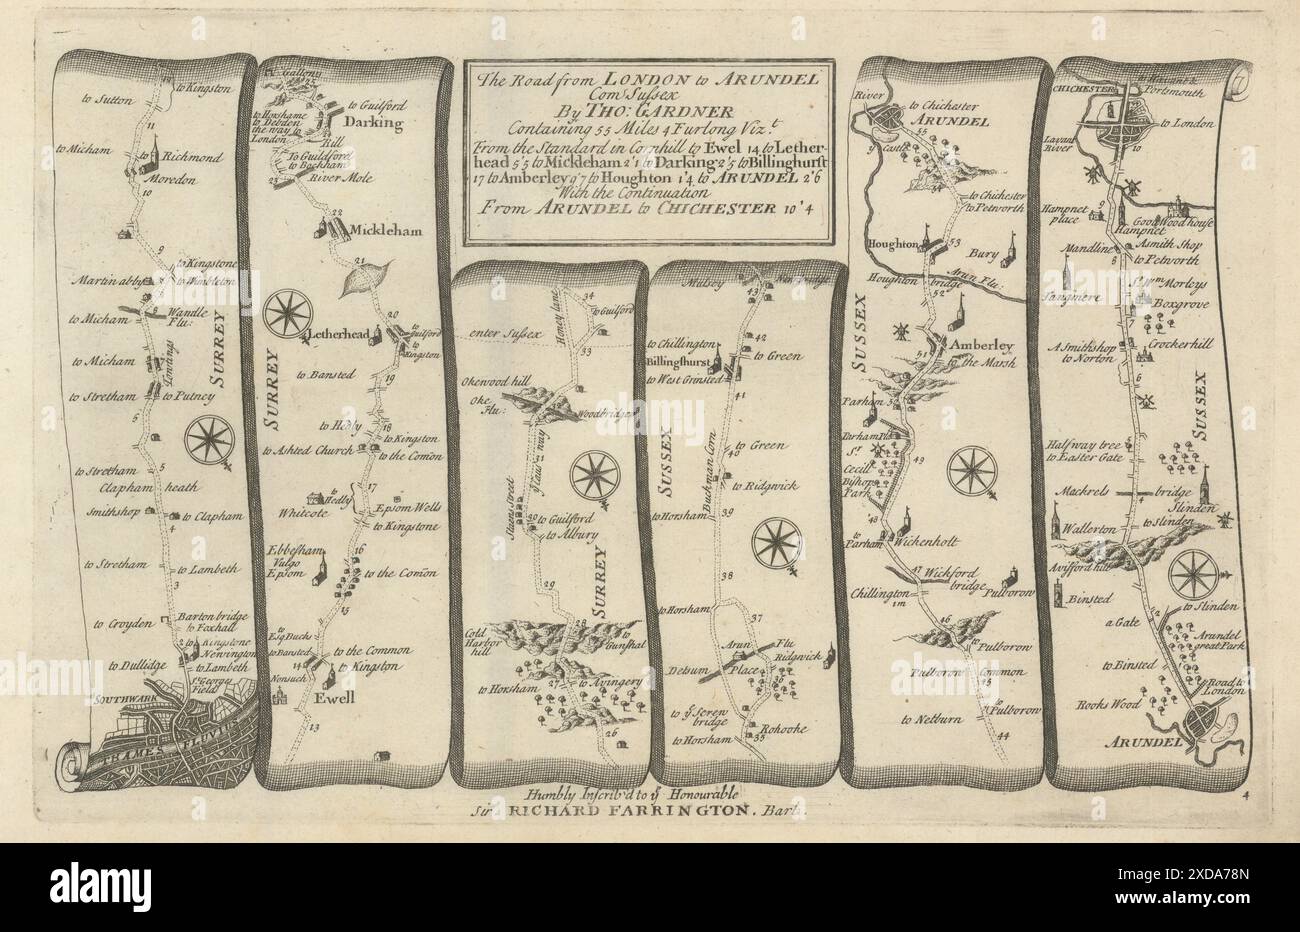 The Road from LONDON to ARUNDEL
Com Sussex
By THO: GARDNER
Containing 55 Miles 4 Furlong Viz.t
From the Standard in Cornhill to Ewel 14 to Lether-
head 5'5 to Mickleham 2'1 to Darking 2'5 to Billinghurst
17 to Amberley 9'7 to Houghton 1'4 to ARUNDEL 2'6
With the Continuation
From ARUNDEL to CHICHESTER 10'4
to Kingston
to Sutton
11
to Micham
to Richmond
Moredon
10
9
to Kingstone
to Wimbleton
Martin abby
8
to Micham
Wandle
Flu:
SURREY
to Micham
Tootings
to Stretham
to Putney
6
to Stretham
5
Clapham heath
Smithshop
to Clapham
4
to Stretham
to Lambeth
3
to Croyden
Barton bridge
to Foxhall
2
to Kingstone
Newington
to Dullidge
to Lambeth
St Georges
Field
SOUTHWARK
THAMES FLUVIUS
Gallons
25
to Horshame
to Debden
the way to
London
to Guilford
Darking
Rill
To Guildford
to Bockham
River Mole
23
22
Mickleham
21
20
Letherhead
to Guilford
to Kingston
SURREY
to Bansted
19
to Hedly
18
to Kingston
to Ashted Church
to the Comon
17
to Hedly
Whitcote
Epsom Wells
to Kingstone
Ebbesham
Vulgo
Epsom
16
to the Comon
15
to
Esq Bucks
to Bansted
to the Common
14
to Kingston
Nonsuch
Ewell
13
34
Honey lane
to Guilford
enter Sussex
33
Okewood hill
Oke
Flu:
Woodbridge
Staen Street
to Guilford
to Albury
29
SURREY
28
Cold
Harbor
hill
to
Gunshal
to Horsham
27
to Avingery
26
Mulsey
43
New bridge
42
to Chillington
to Green
Billingshurst
to West Grinsted
41
SUSSEX
Buckman Corn
to Green
40
to Ridgwick
to Horsham
39
38
to Horsham
37
Arun
Flu
Ridgwick
Debum
Place
36
to ye Seren
bridge
Rohooke
to Horsham
35
River
to Chichester
ARUNDEL
55
Castle
to Chichester
to Petworth
Houghton
53
Bury
Houghton
bridge
Arun Flu:
52
SUSSEX
Amberley
51
to the Marsh
Parham
50
Parham Pla
Sr
Cecill
Bishops
Park
49
48
to
Parham
Wickenholt
47
Wickford
bridge
Chillington
1m
Pulborow
46
Pulborow
Pulborow
Common
45
to
Pulborow
to Netburn
44
7
CHICHESTER
to Havant &
Portsmouth
to London
Lavant
River
10
Hampnet
place
9
Good Wood house
Hampnet
Mandline
8
A smith Shop
to Petworth
Tangmere
Sr Wm Morleys
Boxgrove
7
A Smithshop
to Norton
Crockerhill
6
SUSSEX
Halfway tree
to Easter Gate
Mackrels
bridge
Slinden
Wallerton
to Slinden
Avisford hill
Binsted
to Slinden
a Gate
Arundel
great Park
to Binsted
Rooks Wood
Road to
London
ARUNDEL
Humbly Inscrib'd to ye Honourable
Sir RICHARD FARRINGTON. Bart.
4
alamy
Image ID: 2XDA78N
www.alamy.com